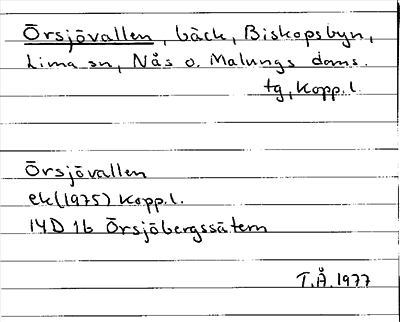 Örsjövallen, bäck, Biskopsbyn,
Lima sn, Nås o. Malungs doms.
tg, Kopp.l.
Örsjövallen
ek (1975) Kopp.l.
14D 1b Örsjöbergssätern
T.Å. 1977